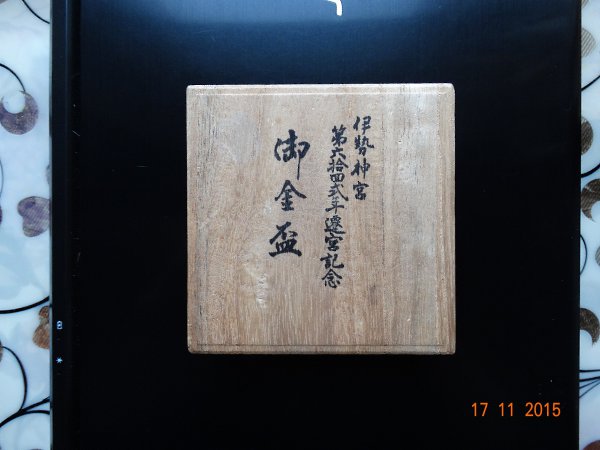 伊勢神宮
第六拾四式年遷宮記念
御金盃
17 11 2015